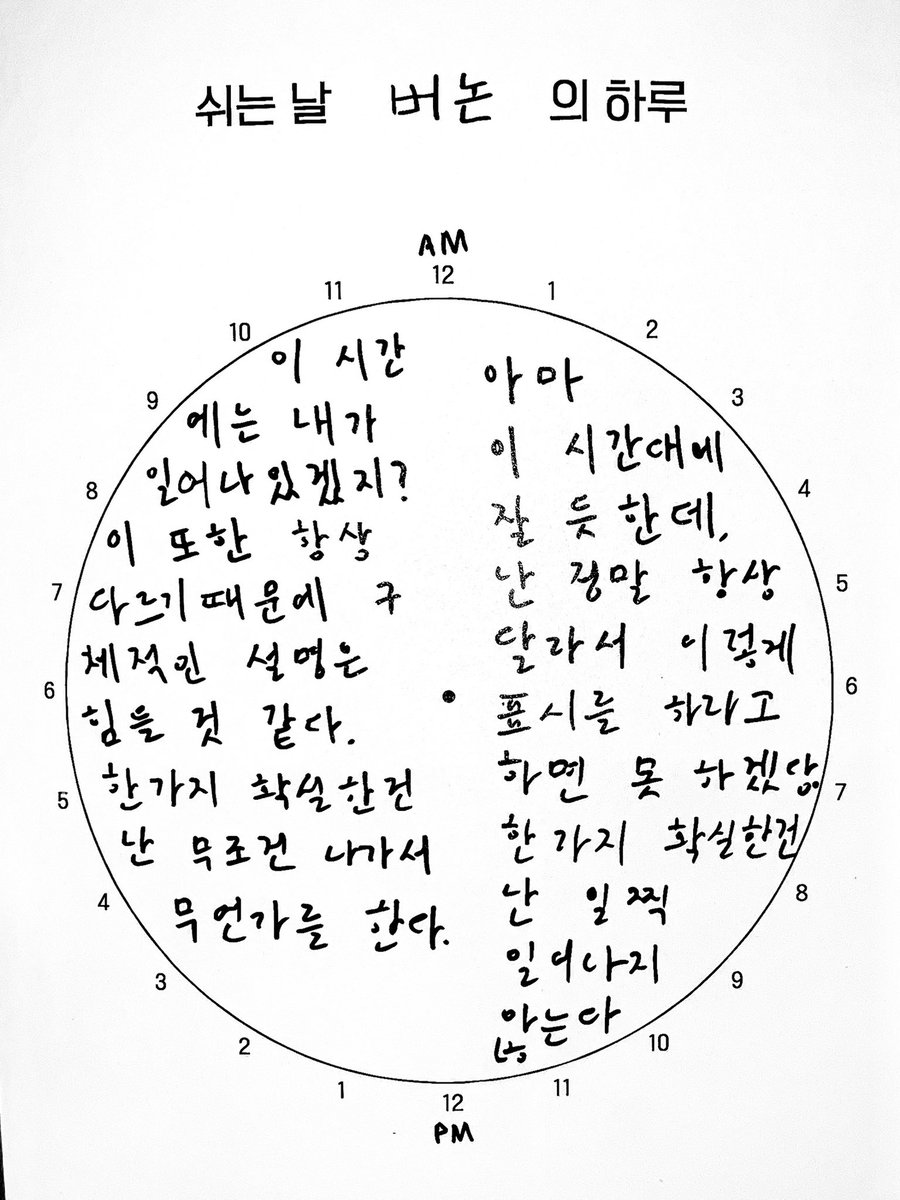 쉬는 날 버논 의 하루
AM
12
1
2
3
4
5
6
7
8
9
10
11
12
PM
1
2
3
4
5
6
7
8
9
10
11
아마
이 시간대에
잘 듯한데,
난 정말 항상
달라서 이렇게
표시를 하라고
하면 못 하겠당.
한가지 확실한건
난 일찍
일어나지
않는다
이 시간
에는 내가
일어나있겠지?
이 또한 항상
다르기때문에 구
체적인 설명은
힘들 것 같다.
한가지 확실한건
난 무조건 나가서
무언가를 한다.